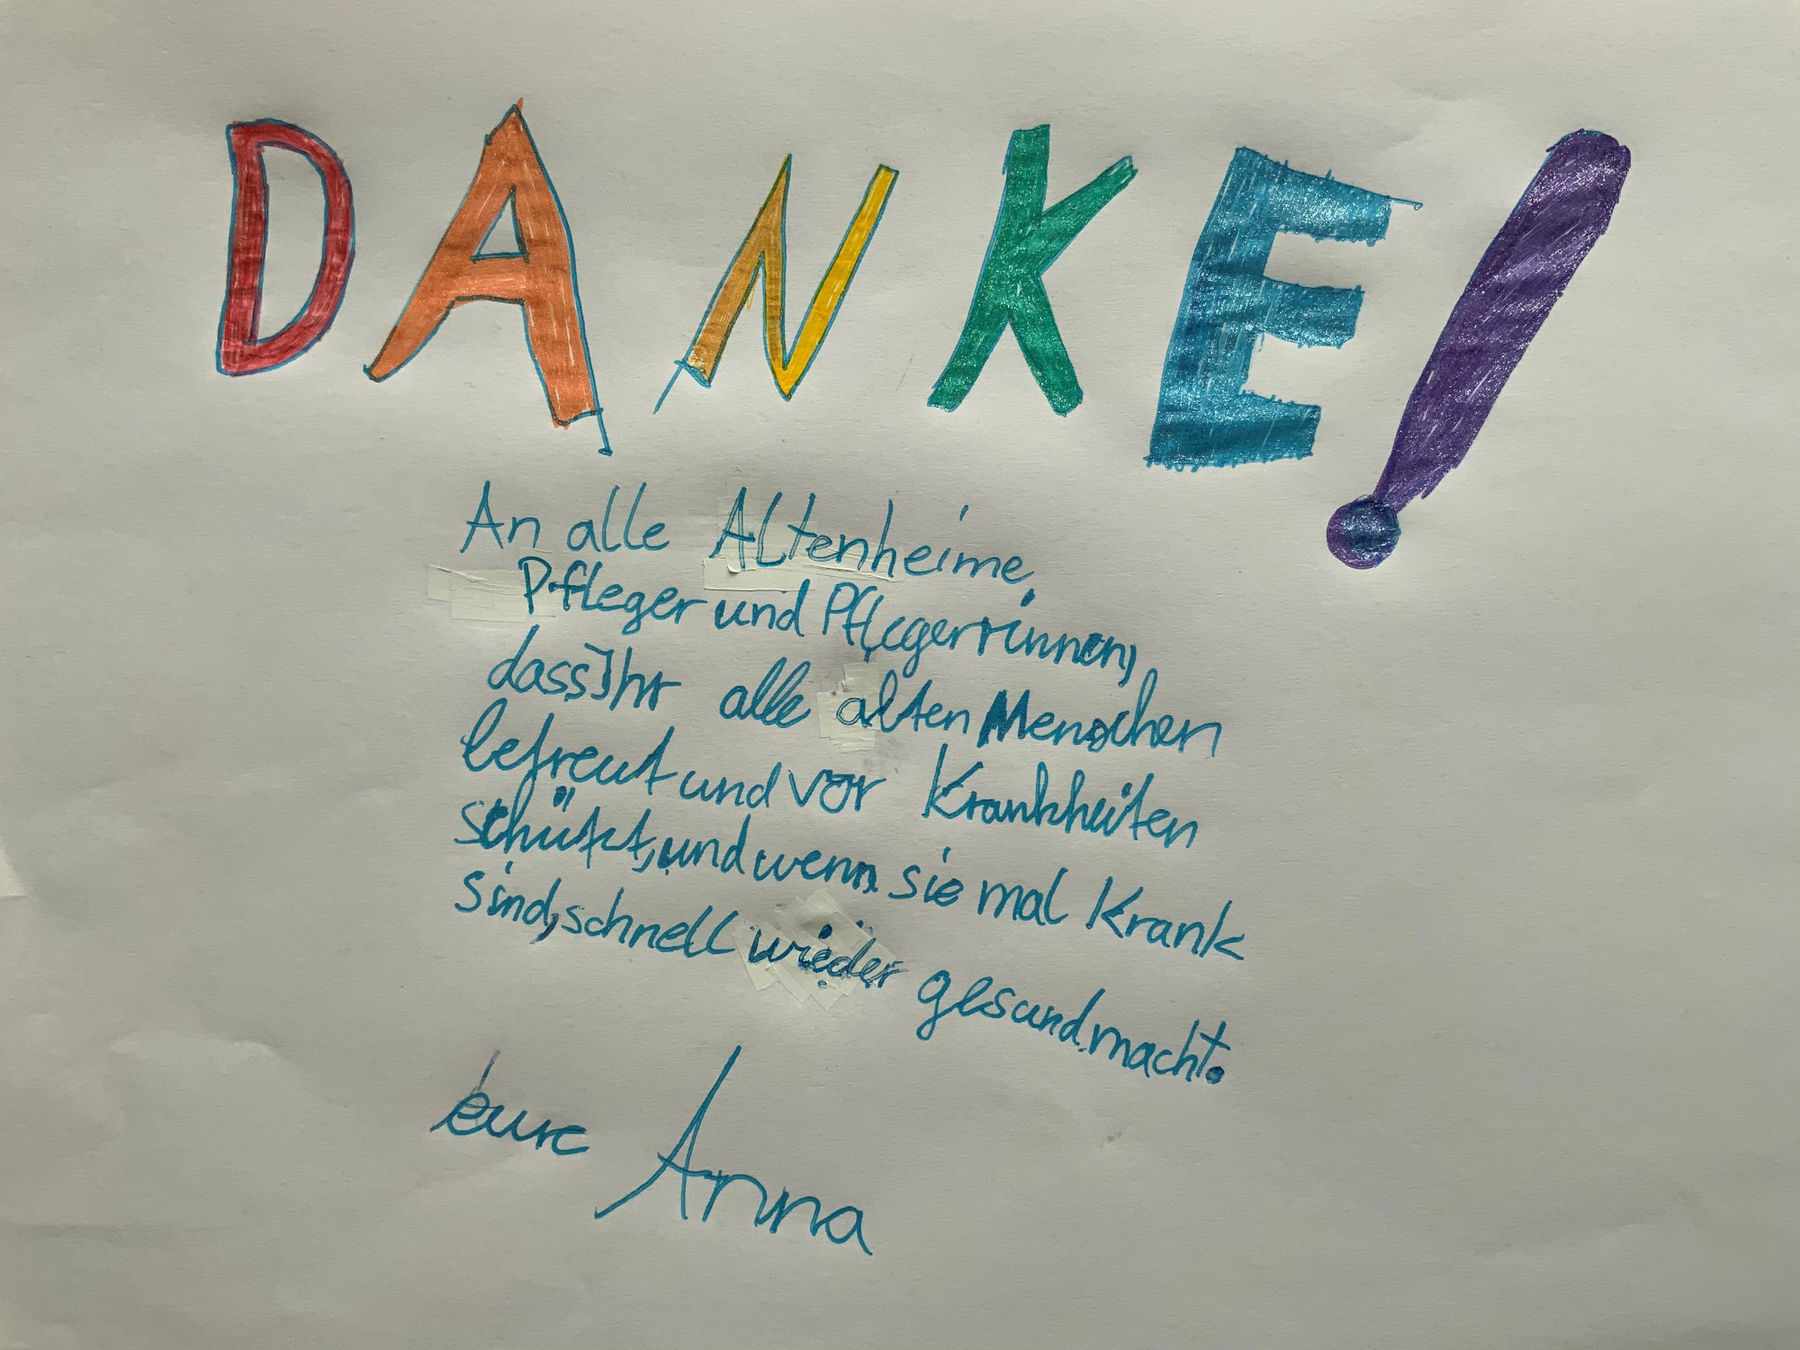 DANKE!
An alle Altenheime,
Pfleger und Pflegerrinnen,
dass Ihr alle alten Menschen
befreut und vor Krankheiten
schützt, und wenn sie mal Krank
sind, schnell wieder gesund macht.
eure Anna